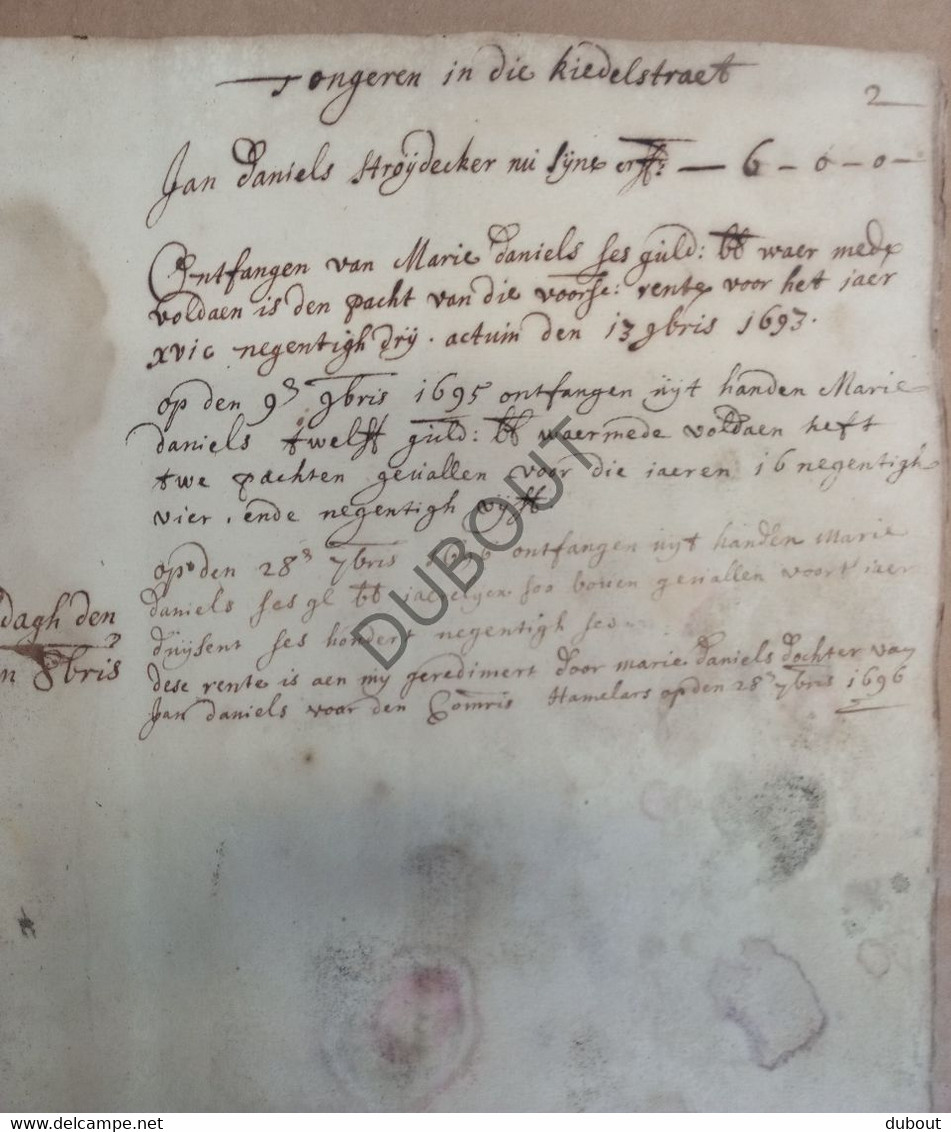 Tongeren in die kiedelstraet
2
Jan Daniels Stroijdecker nu sijne erff: — 6 - 0 - 0 -
Ontfangen van Marie Daniels ses guld: bb waer mede
voldaen is den pacht van die voorse: rente voor het jaer
xvic negentigh drij . actum den 13 9bris 1693 .
op den 9 9bris 1695 ontfangen uijt handen Marie
daniels twelff guld: bb waermede voldaen heft
twe pachten gevallen voor die iaeren 16 negentigh
vier . ende negentigh vijff
op den 28 7bris 1696 ontfangen uijt handen Marie
daniels ses gl bb soo boven gevallen voort iaer
duijsent ses hondert negentigh ses
dese rente is aen mij geredimert door marie daniels dochter van
Jan daniels voor den Comris Hamelars op den 28 7bris 1696
dagh den
n 8bris
DUBOUT
delcampe.net
dubout